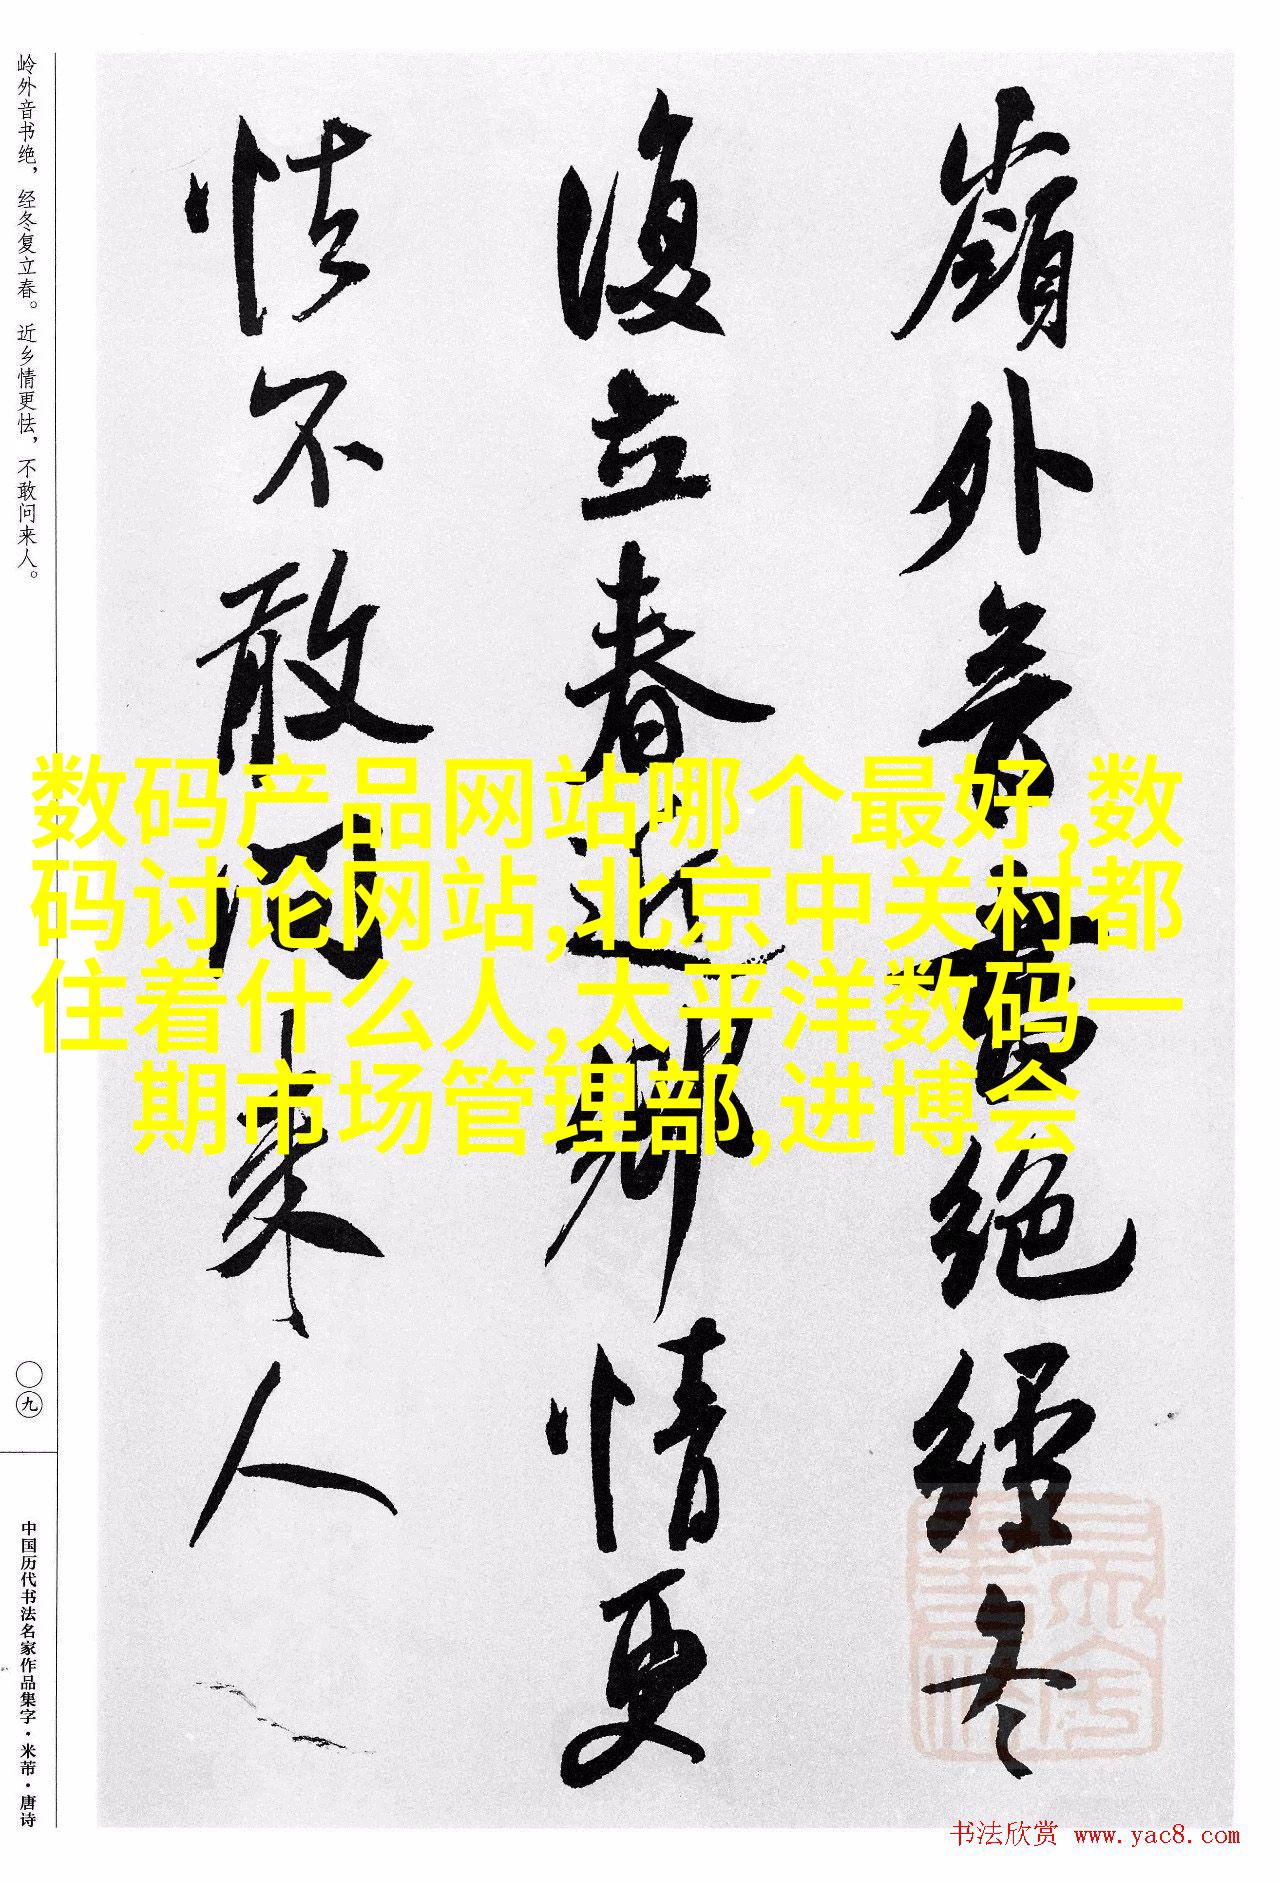 嶺外音書绝經冬
復立春近鄉情更
怯不敢问来人
岭外音书绝，经冬复立春。近乡情更怯，不敢问来人。
〇九
中国历代书法名家作品集字·米芾·唐诗
数码产品网站哪个最好,数
码讨论网站,北京中关村都
住着什么人,太平洋数码一
期市场管理部,进博会
书法欣赏 www.yac8.com